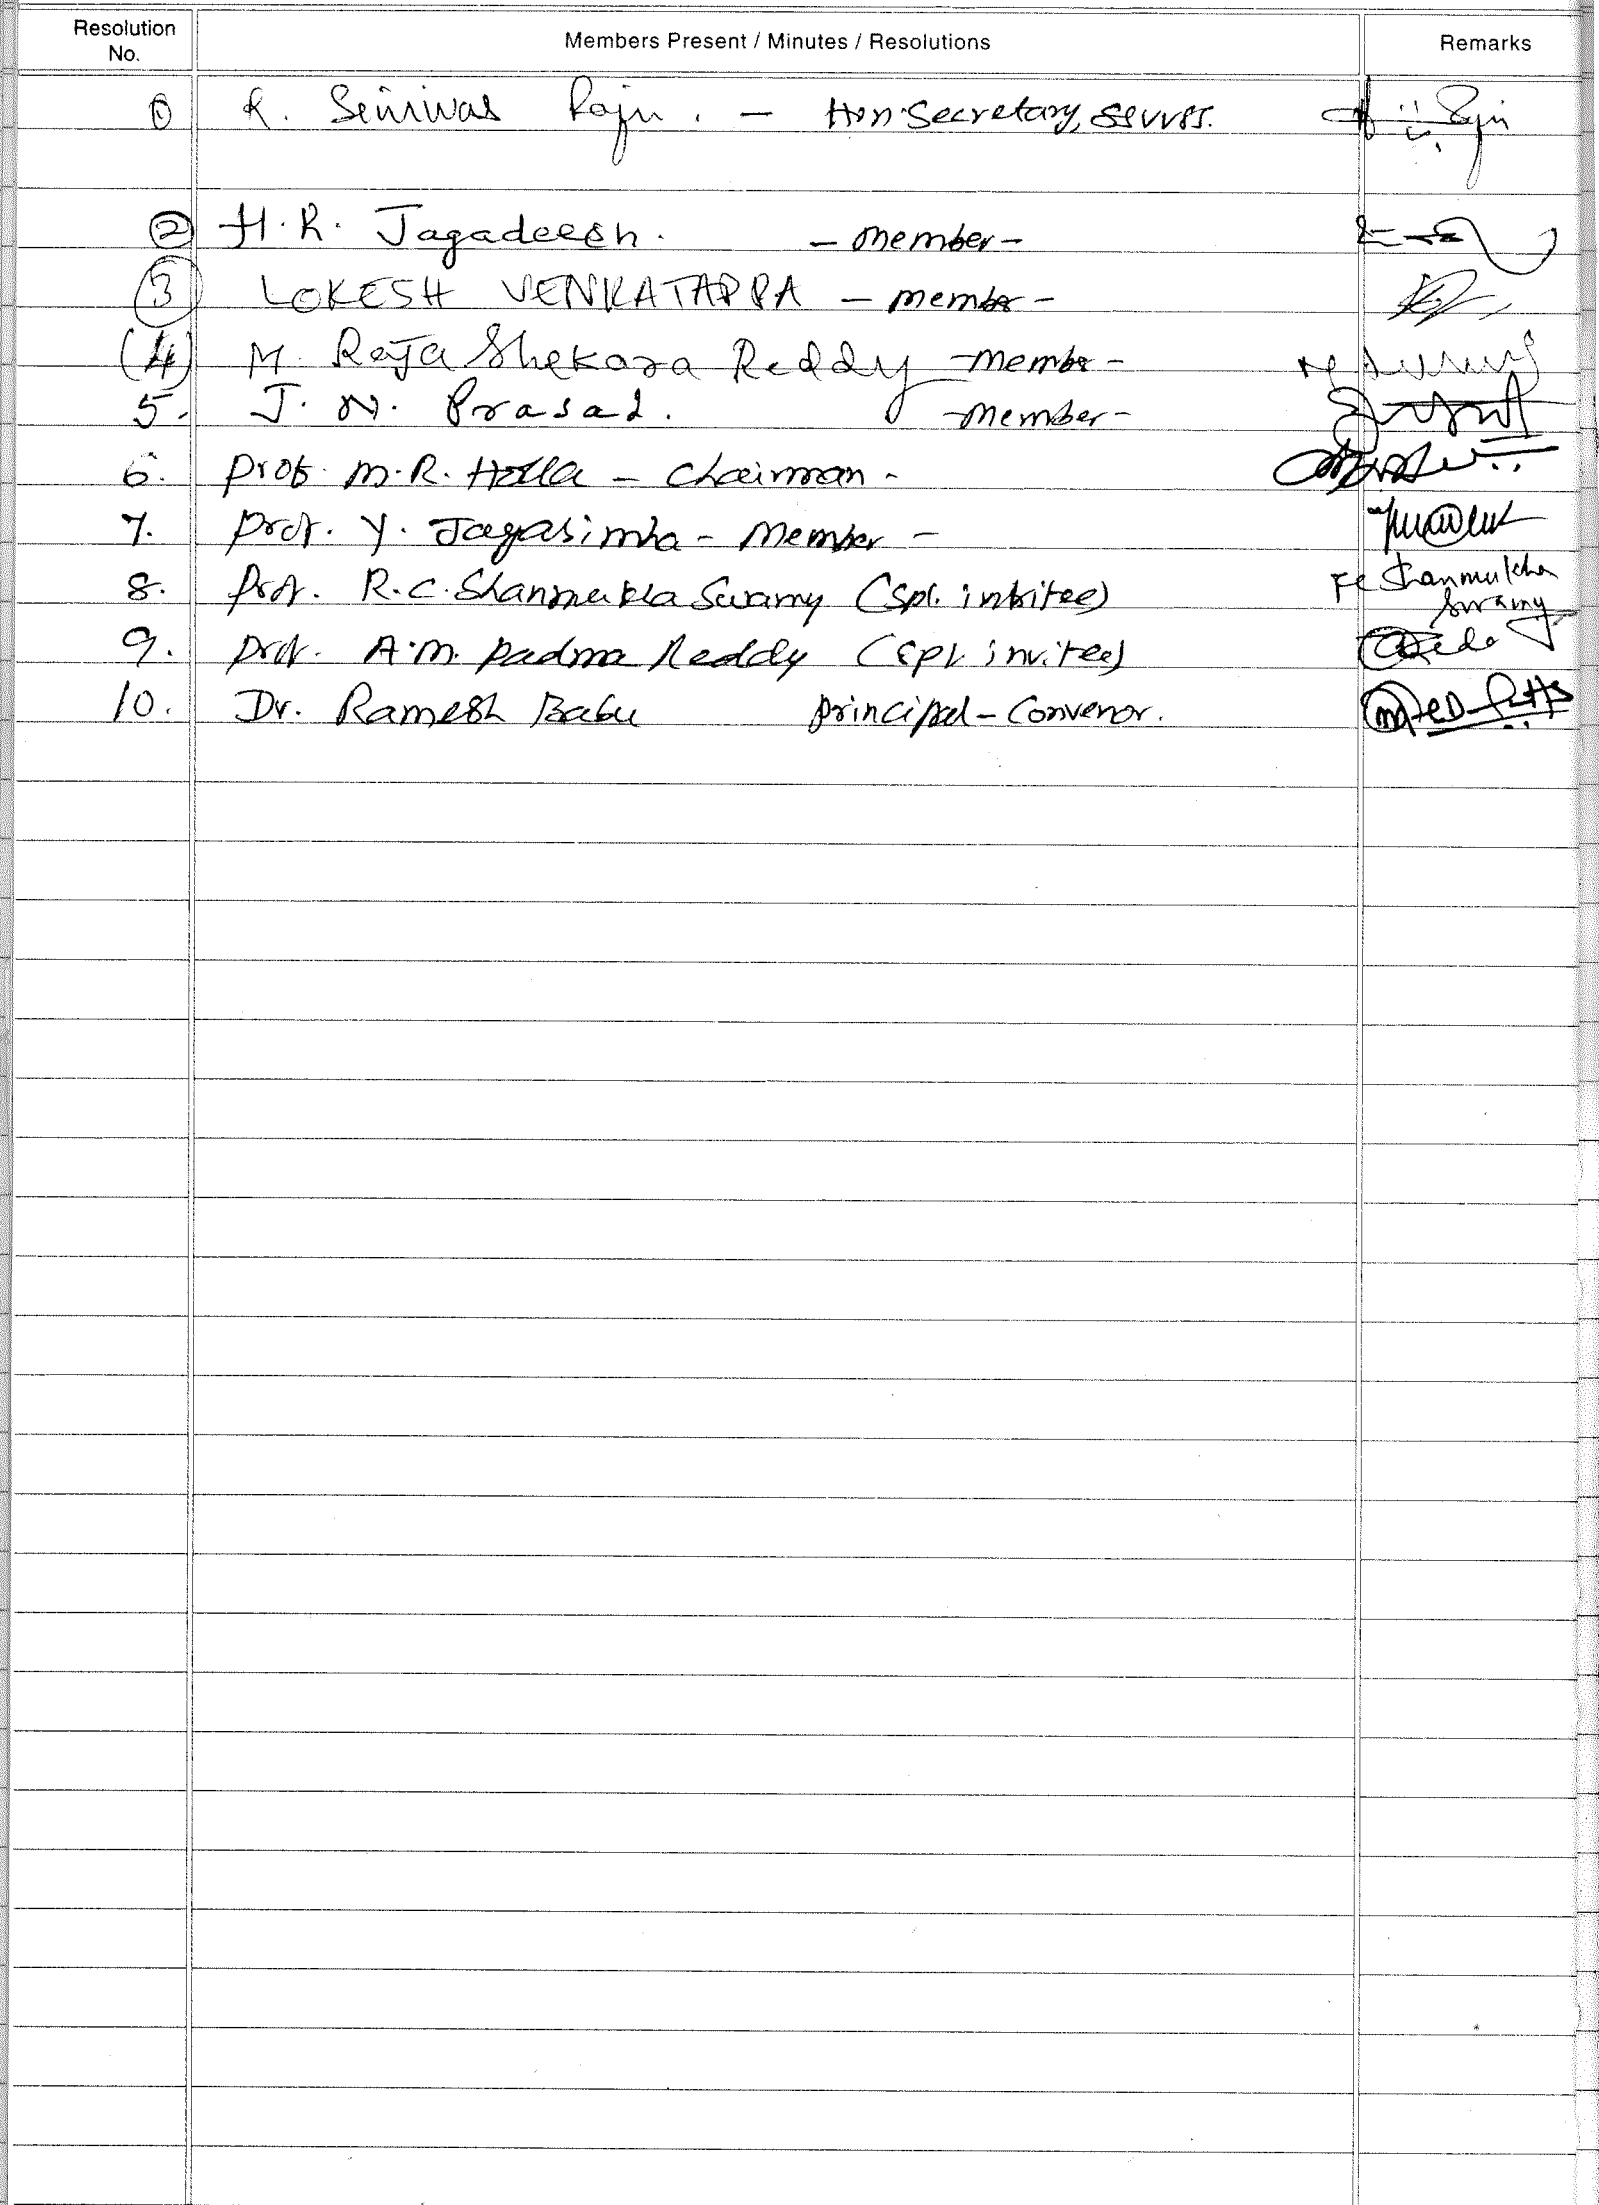 Resolution No. Members Present / Minutes / Resolutions Remarks
1 R. Sriniwas Raju. - Hon. Secretary,
2 H.R. Jagadeesh. - member -
3 LOKESH VENKATAPPA - member -
(4) M. RaJa Shekara Reddy - member -
5. J. N. Prasad. - member -
6. Prof. M.R. Holla - Chairman -
7. Prof. Y. Jagasimha - Member -
8. Prof. R.C. Shanmukha Swamy (Spl. invitee) Shanmukha Swamy
9. Prof. A.M. Padma Reddy (Spl. invitee)
10. Dr. Ramesh Babu Principal - Convenor.